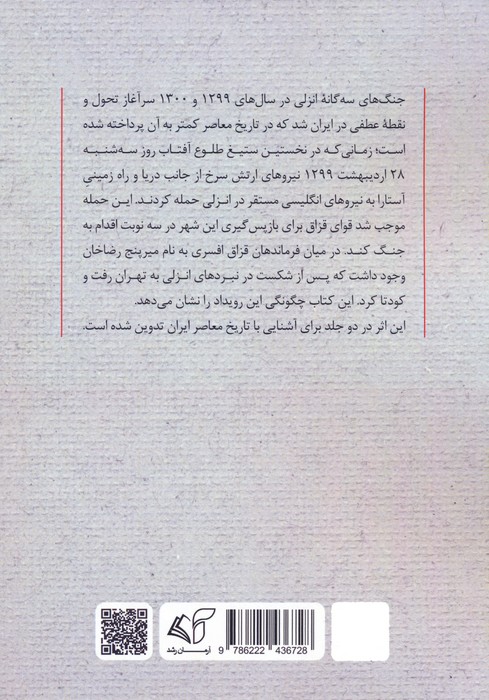 جنگ‌های سه‌گانهٔ انزلی در سال‌های ۱۲۹۹ و ۱۳۰۰ سرآغاز تحول و
نقطهٔ عطفی در ایران شد که در تاریخ معاصر کمتر به آن پرداخته شده
است؛ زمانی‌که در نخستین ستیغ طلوع آفتاب روز سه‌شنبه
۲۸ اردیبهشت ۱۲۹۹ نیروهای ارتش سرخ از جانب دریا و راه زمینیِ
آستارا به نیروهای انگلیسی مستقر در انزلی حمله کردند. این حمله
موجب شد قوای قزاق برای بازپس‌گیری این شهر در سه نوبت اقدام به
جنگ کند. در میان فرماندهان قزاق افسری به نام میرپنج رضاخان
وجود داشت که پس از شکست در نبردهای انزلی به تهران رفت و
کودتا کرد. این کتاب چگونگی این رویداد را نشان می‌دهد.
این اثر در دو جلد برای آشنایی با تاریخ معاصر ایران تدوین شده است.
آرمان رشد
9 786222 436728